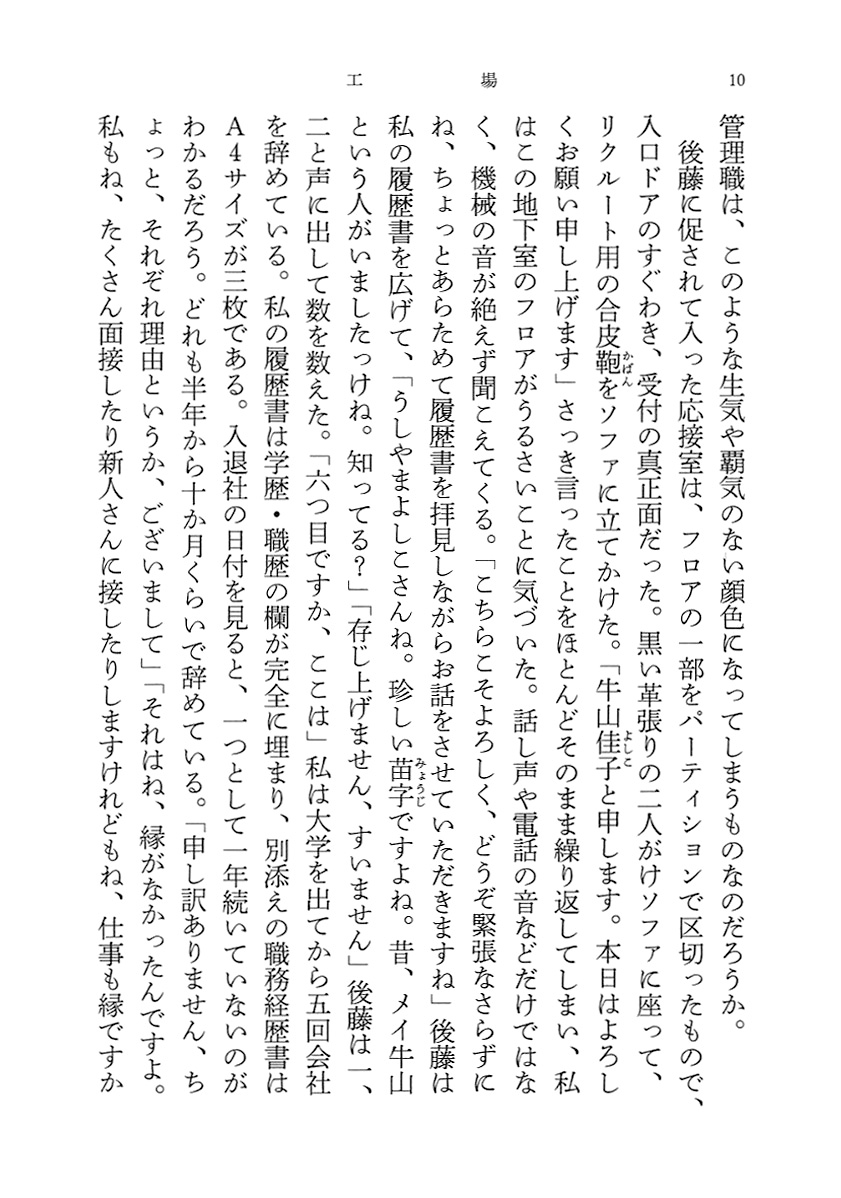 10
工場
管理職は、このような生気や覇気のない顔色になってしまうものなのだろうか。
後藤に促されて入った応接室は、フロアの一部をパーティションで区切ったもので、
入口ドアのすぐわき、受付の真正面だった。黒い革張りの二人がけソファに座って、
リクルート用の合皮鞄をソファに立てかけた。「牛山佳子と申します。本日はよろし
かばん
よしこ
くお願い申し上げます」さっき言ったことをほとんどそのまま繰り返してしまい、私
はこの地下室のフロアがうるさいことに気づいた。話し声や電話の音などだけではな
く、機械の音が絶えず聞こえてくる。「こちらこそよろしく、どうぞ緊張なさらずに
ね、ちょっとあらためて履歴書を拝見しながらお話をさせていただきますね」後藤は
私の履歴書を広げて、「うしやまよしこさんね。珍しい苗字ですよね。昔、メイ牛山
みょうじ
という人がいましたっけね。知ってる？」「存じ上げません、すいません」後藤は一、
二と声に出して数を数えた。「六つ目ですか、ここは」私は大学を出てから五回会社
を辞めている。私の履歴書は学歴・職歴の欄が完全に埋まり、別添えの職務経歴書は
Ａ４サイズが三枚である。入退社の日付を見ると、一つとして一年続いていないのが
わかるだろう。どれも半年から十か月くらいで辞めている。「申し訳ありません、ち
ょっと、それぞれ理由というか、ございまして」「それはね、縁がなかったんですよ。
私もね、たくさん面接したり新人さんに接したりしますけれどもね、仕事も縁ですか